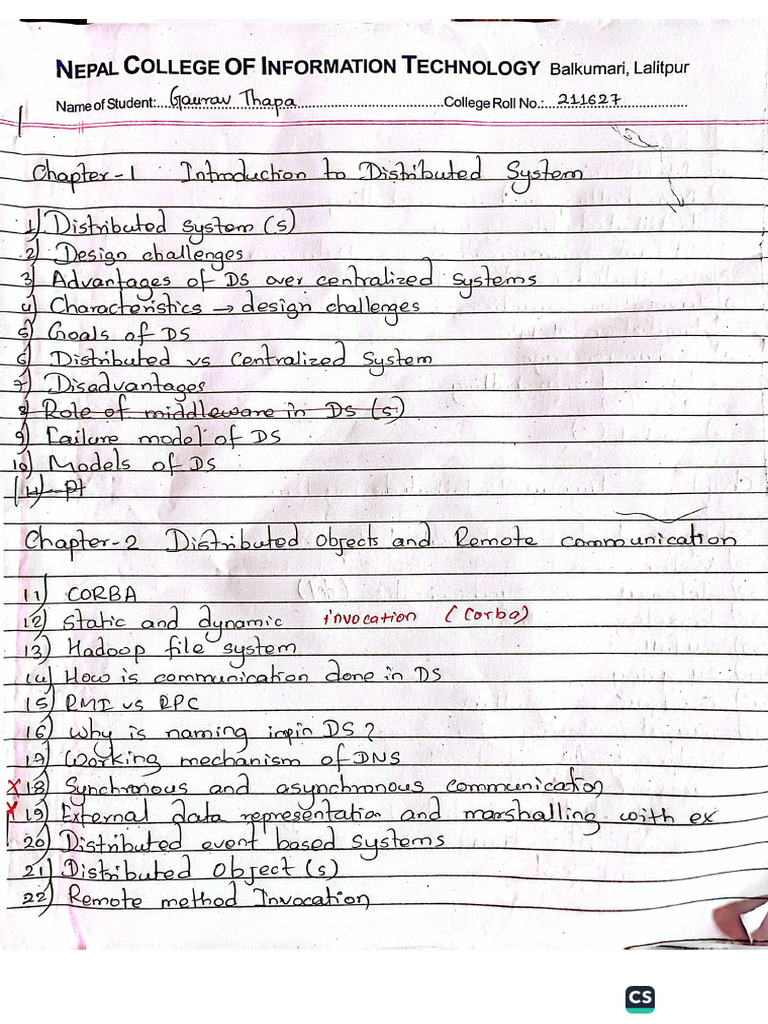 NEPAL COLLEGE OF INFORMATION TECHNOLOGY Balkumari, Lalitpur
Name of Student:....Gaurav Thapa....College Roll No.:...211627....
Chapter-1 Introduction to Distributed System
1) Distributed system (s)
2) Design challenges
3) Advantages of DS over centralized systems
4) Characteristics → design challenges
5) Goals of DS
6) Distributed vs Centralized System
7) Disadvantages
8 Role of middleware in DS (s)
9) Failure model of DS
10) Models of DS
11) Pt
Chapter-2 Distributed Objects and Remote communication
11) CORBA
12) Static and dynamic invocation (Corba)
13) Hadoop file system
14) How is communication done in DS
15) RMI vs RPC
16) Why is naming impin DS ?
17) Working mechanism of DNS
x 18) Synchronous and asynchronous communication
x 19) External data representation and marshalling with ex
20) Distributed event based systems
21) Distributed Object (s)
22) Remote method Invocation
CS